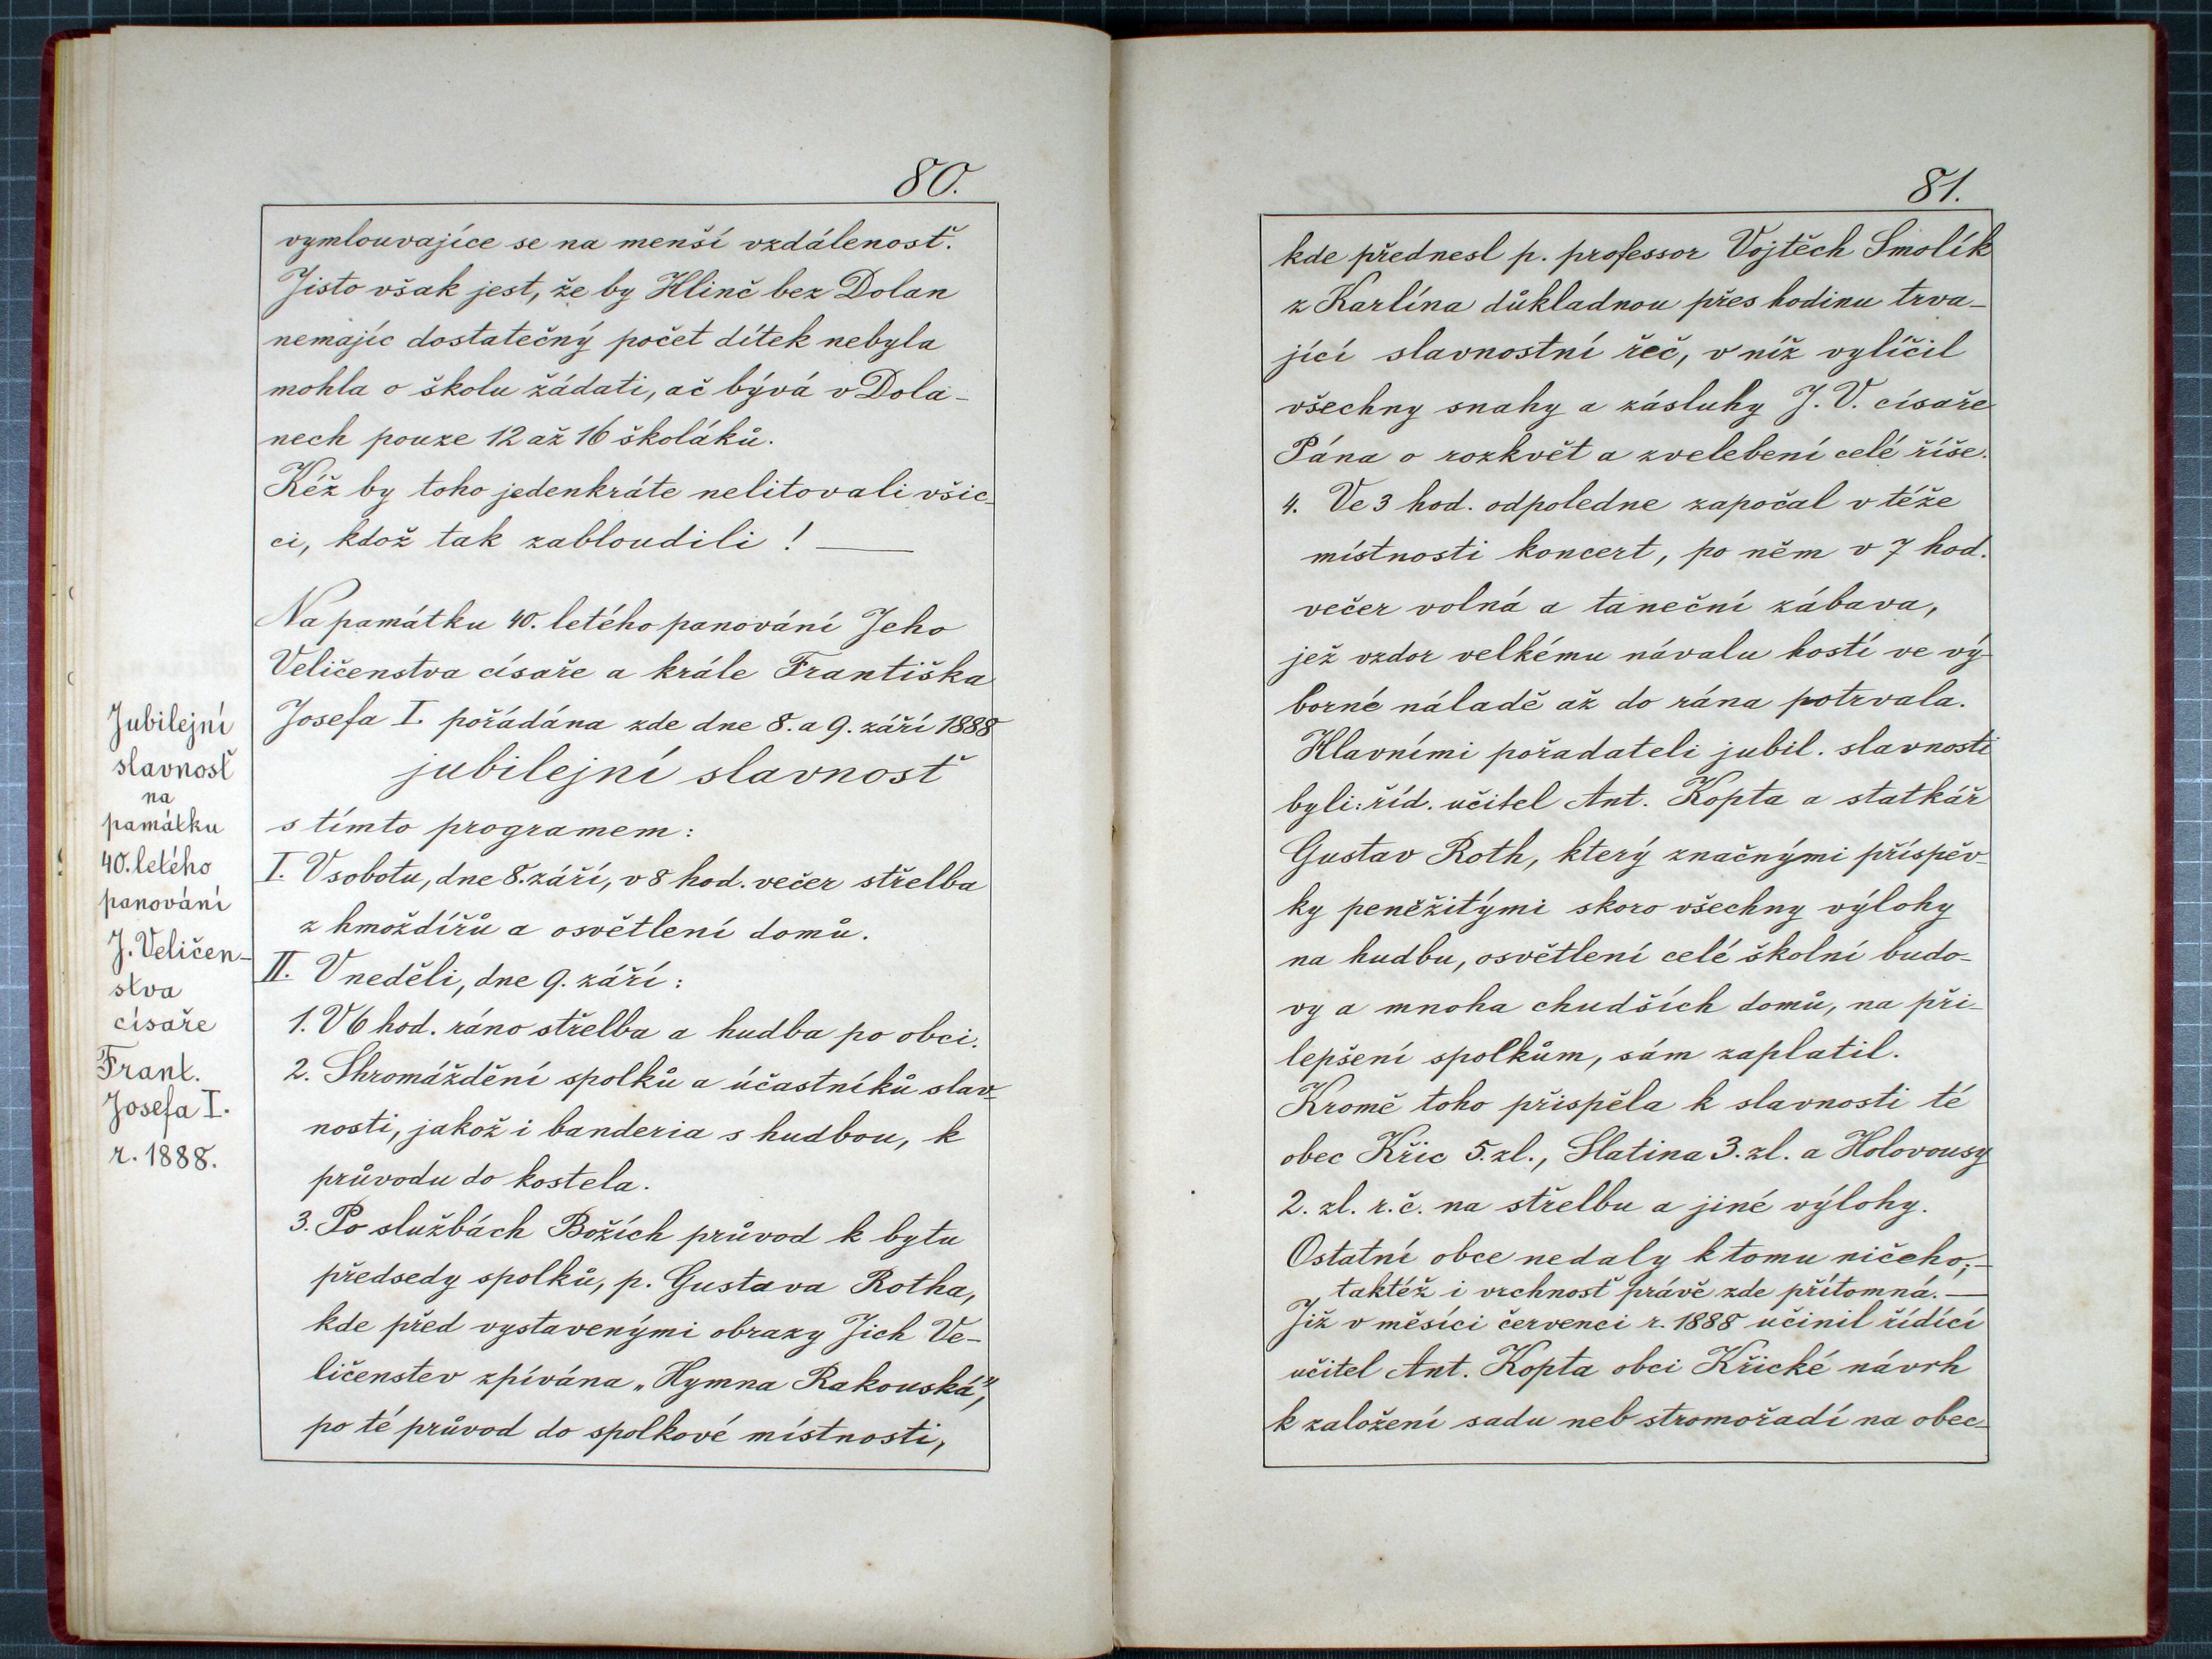 80.
vymlouvajíce se na menší vzdálenosť.
Jisto však jest, že by Hlinč bez Dolan
nemajíc dostatečný počet dítek nebyla
mohla o školu žádati, ač bývá v Dola-
nech pouze 12 až 16 školáků.
Kéž by toho jedenkráte nelitovali všic-
ci, kdož tak zabloudili ! —
Na památku 40. letého panování Jeho
Veličenstva císaře a krále Františka
Josefa I. pořádána zde dne 8. a 9. září 1888
jubilejní slavnosť
s tímto programem :
I. V sobotu, dne 8. září, v 8 hod. večer střelba
z hmoždířů a osvětlení domů.
II. V neděli, dne 9. září :
1. V 6 hod. ráno střelba a hudba po obci.
2. Shromáždění spolků a účastníků slav-
nosti, jakož i banderia s hudbou, k
průvodu do kostela.
3. Po službách Božích průvod k bytu
předsedy spolků, p. Gustava Rotha,
kde před vystavenými obrazy Jich Ve-
ličenstev zpívána „Hymna Rakouská",
po té průvod do spolkové místnosti,
Jubilejní
slavnosť
na
památku
40. letého
panování
J. Veličen-
stva
císaře
Frant.
Josefa I.
r. 1888.
81.
kde přednesl p. professor Vojtěch Smolík
z Karlína důkladnou přes hodinu trva-
jící slavnostní řeč, v níž vylíčil
všechny snahy a zásluhy J. V. císaře
Pána o rozkvět a zvelebení celé říše.
4. Ve 3 hod. odpoledne započal v téže
místnosti koncert, po něm v 7 hod.
večer volná a taneční zábava,
jež vzdor velkému návalu hostí ve vý-
borné náladě až do rána potrvala.
Hlavními pořadateli jubil. slavnosti
byli: říd. učitel Ant. Kopta a statkář
Gustav Roth, který značnými příspěv-
ky peněžitými skoro všechny výlohy
na hudbu, osvětlení celé školní budo-
vy a mnoha chudších domů, na při-
lepšení spolkům, sám zaplatil.
Kromě toho přispěla k slavnosti té
obec Křic 5. zl., Slatina 3. zl. a Holovousy
2. zl. r. č. na střelbu a jiné výlohy.
Ostatní obce nedaly k tomu ničeho;-
taktéž i vrchnosť právě zde přítomná. —
Již v měsíci červenci r. 1888 učinil řídící
učitel Ant. Kopta obci Křické návrh
k založení sadu neb stromořadí na obec-